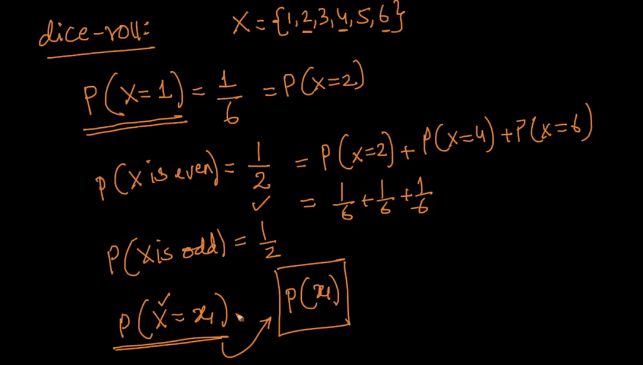 dice-roll: X = {1,2,3,4,5,6}
P(X=1) = 1/6 = P(X=2)
P(X is even) = 1/2 = P(X=2) + P(X=4) + P(X=6)
✓ = 1/6 + 1/6 + 1/6
P(X is odd) = 1/2
P(X = x₁) P(x₁)